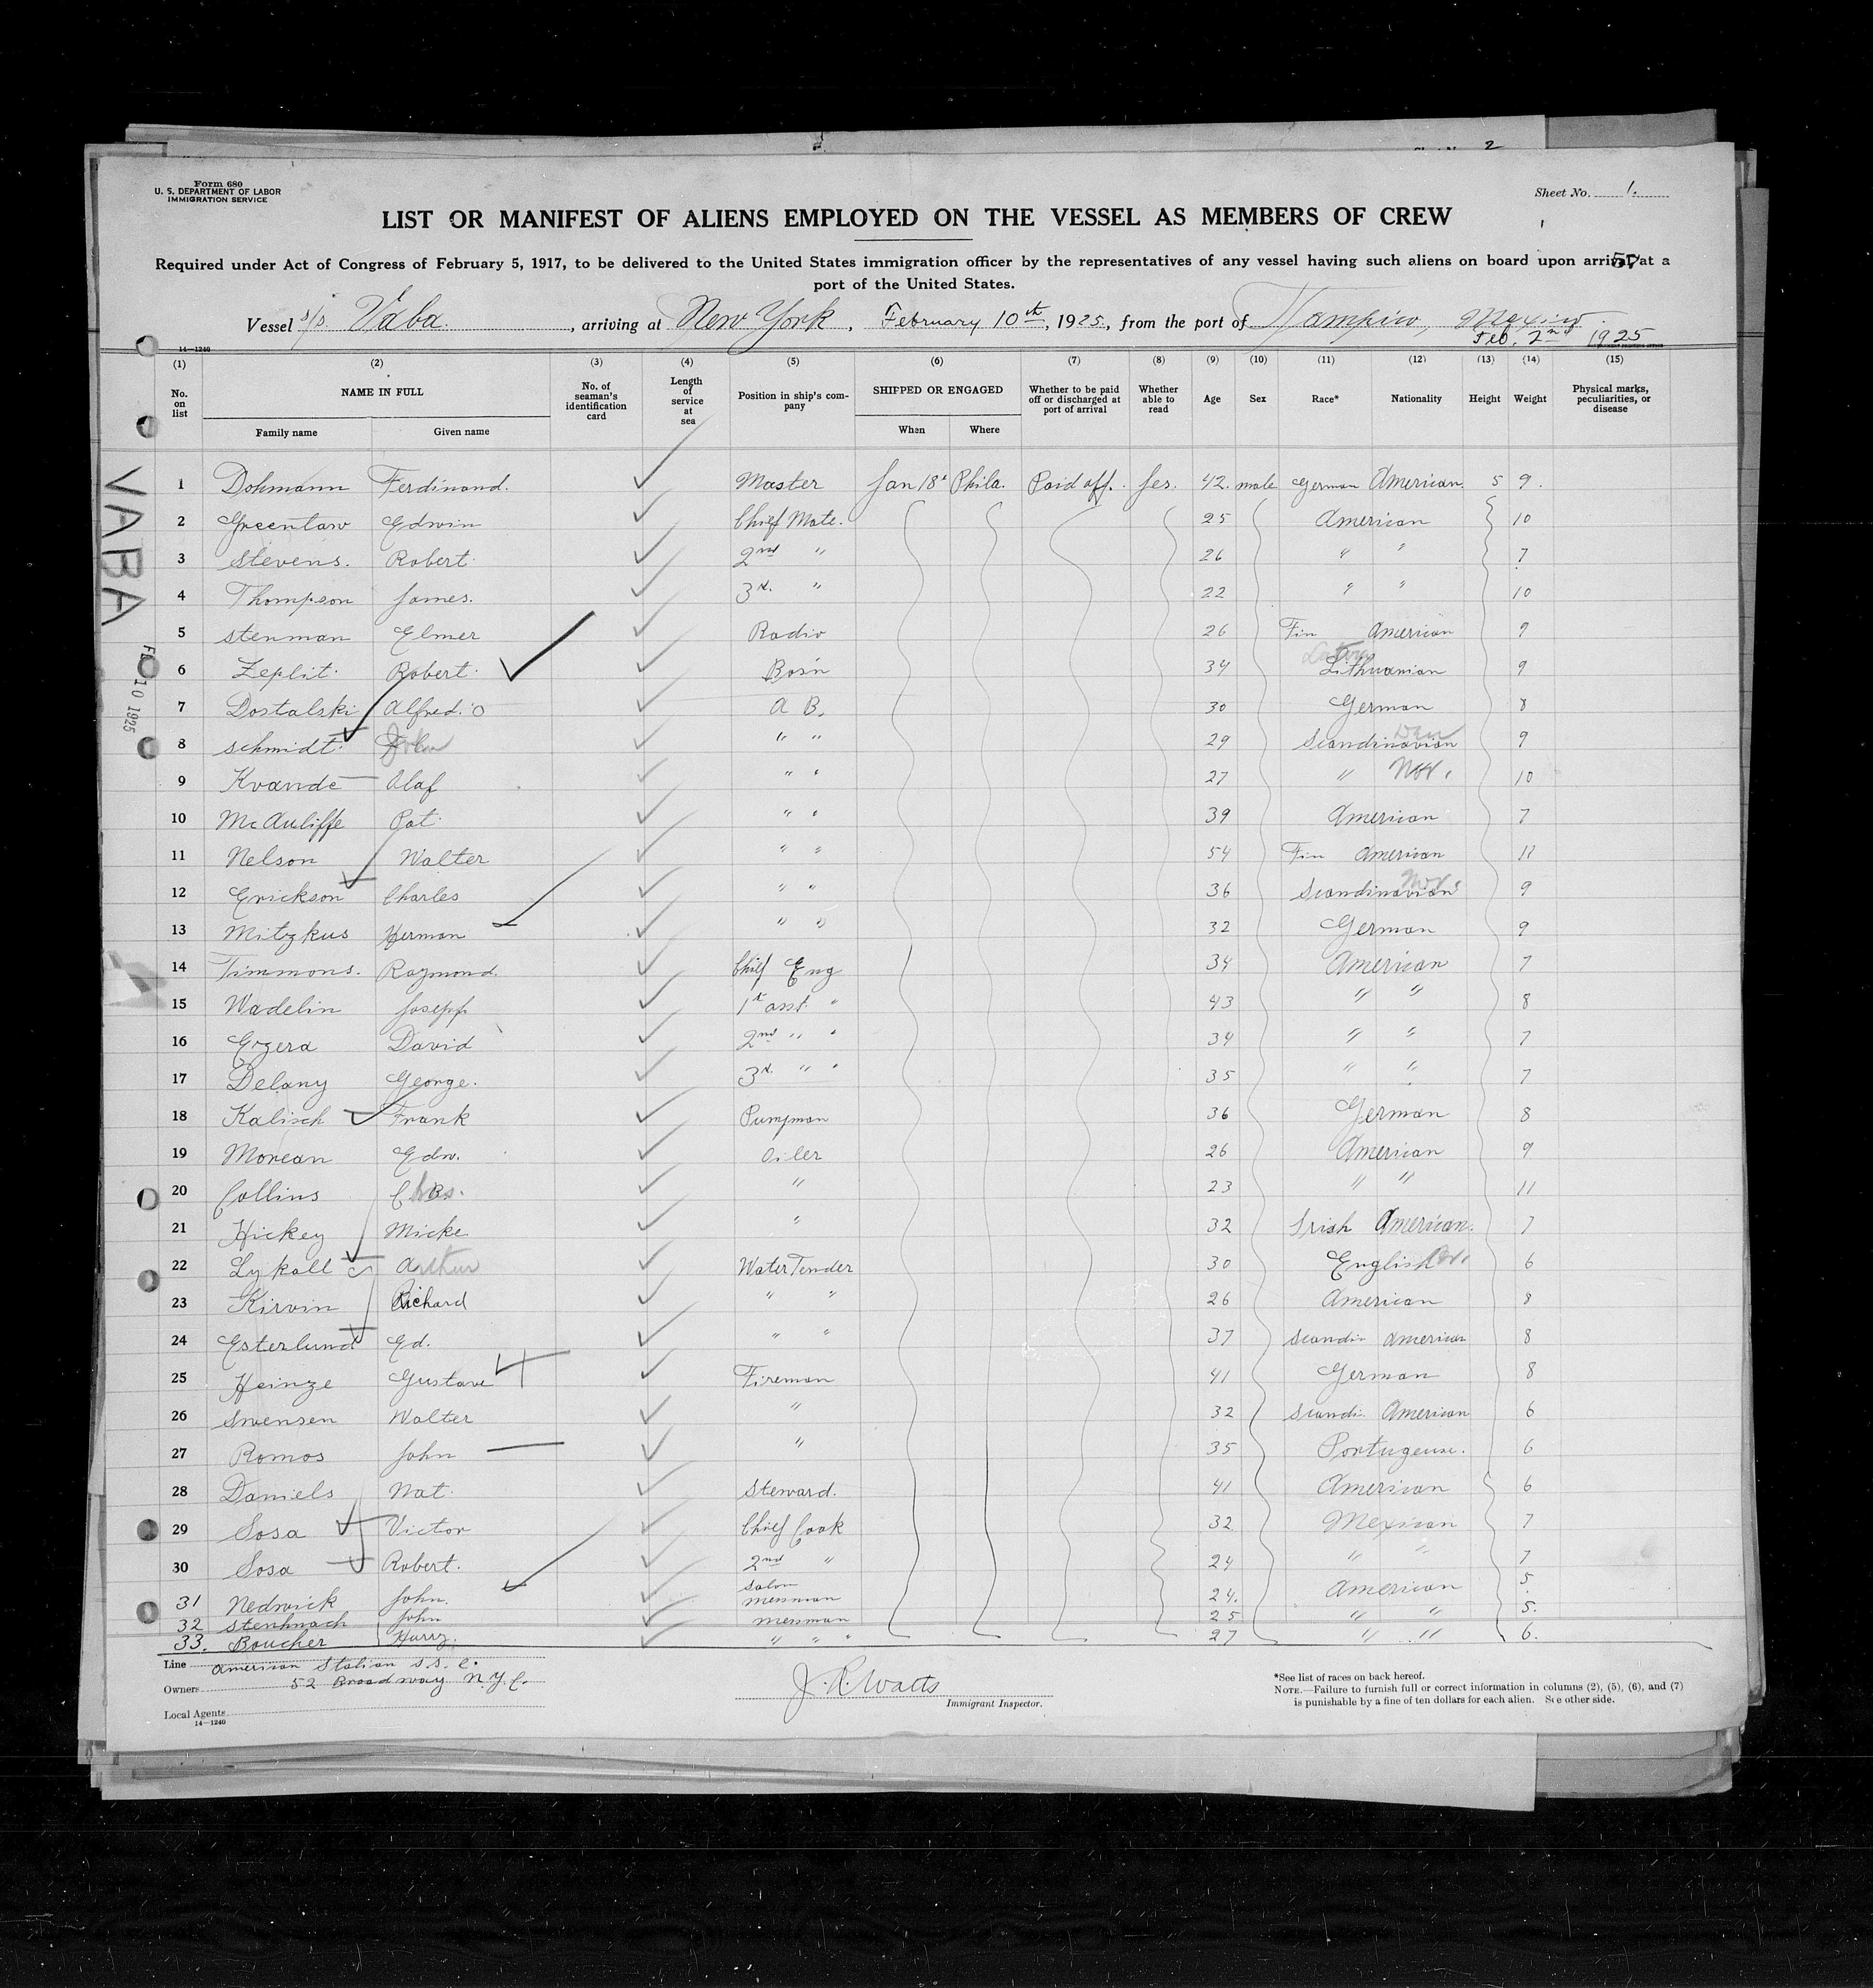 Form 680
U. S. DEPARTMENT OF LABOR
IMMIGRATION SERVICE
Sheet No. 1.
LIST OR MANIFEST OF ALIENS EMPLOYED ON THE VESSEL AS MEMBERS OF CREW
Required under Act of Congress of February 5, 1917, to be delivered to the United States immigration officer by the representatives of any vessel having such aliens on board upon arrival at a
port of the United States.
Vessel s/s. Vaba., arriving at New York, February 10th, 1925, from the port of Tampico, Mexico.
Feb. 2nd 1925
14—1240
(1) (2) (3) (4) (5) (6) (7) (8) (9) (10) (11) (12) (13) (14) (15)
No. on list NAME IN FULL Family name Given name No. of seaman's identification card Length of service at sea Position in ship's company SHIPPED OR ENGAGED When Where Whether to be paid off or discharged at port of arrival Whether able to read Age Sex Race* Nationality Height Weight Physical marks, peculiarities, or disease
VABA
10 1925
1 Dohmann Ferdinand. Master Jan 18 Phila. Paid off. Yes. 42. male German American. 5 9.
2 Greenlaw Edwin Chief Mate. 25 American 10
3 Stevens. Robert. 2nd " 26 " " 7
4 Thompson James. 3d. " 22 " " 10
5 Stenman Elmer Radio 26 Fin American 9
6 Zeplit. Robert. Bos'n 34 Lithuanian 9
7 Dostalski Alfred. O A B. 30 German 8
8 Schmidt. " " 29 Scandinavian Dan 9
9 Kvande Olaf " " 27 " Nor. 10
10 McAuliffe Pat. " " 39 American 7
11 Nelson Walter " " 54 Fin American 11
12 Erickson Charles " " 36 Scandinavian Nor. 9
13 Mitzkus Herman " " 32 German 9
14 Timmons. Raymond. Chief Eng 34 American 7
15 Wadelin Josepp 1st asst. " 43 " " 8
16 David 2nd " " 34 " " 7
17 Delany George. 3d. " " 35 " " 7
18 Kalisch Frank Pumpman 36 German 8
19 Morean Edw. Oiler 26 American 9
20 Collins " 23 " " 11
21 Hickey Micke " 32 Irish American. 7
22 Lykall Arthur Water Tender 30 English 6
23 Kirvin Richard " " 26 American 8
24 Esterlund Ed. " " 37 Scandi- American 8
25 Heinze Gustave Fireman 41 German 8
26 Swensen Walter " 32 Scandi- American 6
27 Romos John " 35 Portugeuse. 6
28 Daniels Nat. Steward. 41 American 6
29 Sosa Victor Chief Cook 32 Mexican 7
30 Sosa Robert. 2nd " 24 " " 7
31 Nedwick John. Salon messman 24. American 5
32 John messman 25 " " 5.
33. Boucher Harry. " " " 27 " " 6.
Line American Station s.s. C.
Owners 52 Broadway N.Y.C.
Local Agents
14—1240
J. R. Watts
Immigrant Inspector.
*See list of races on back hereof.
NOTE.—Failure to furnish full or correct information in columns (2), (5), (6), and (7)
is punishable by a fine of ten dollars for each alien. See other side.